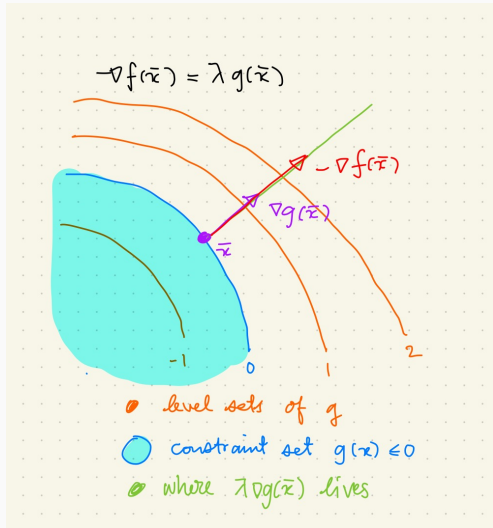 -∇f(x̄) = λ g(x̄)
-∇f(x̄)
∇g(x̄)
x̄
-1
0
1
2
level sets of g
constraint set g(x) ≤0
where λ∇g(x̄) lives